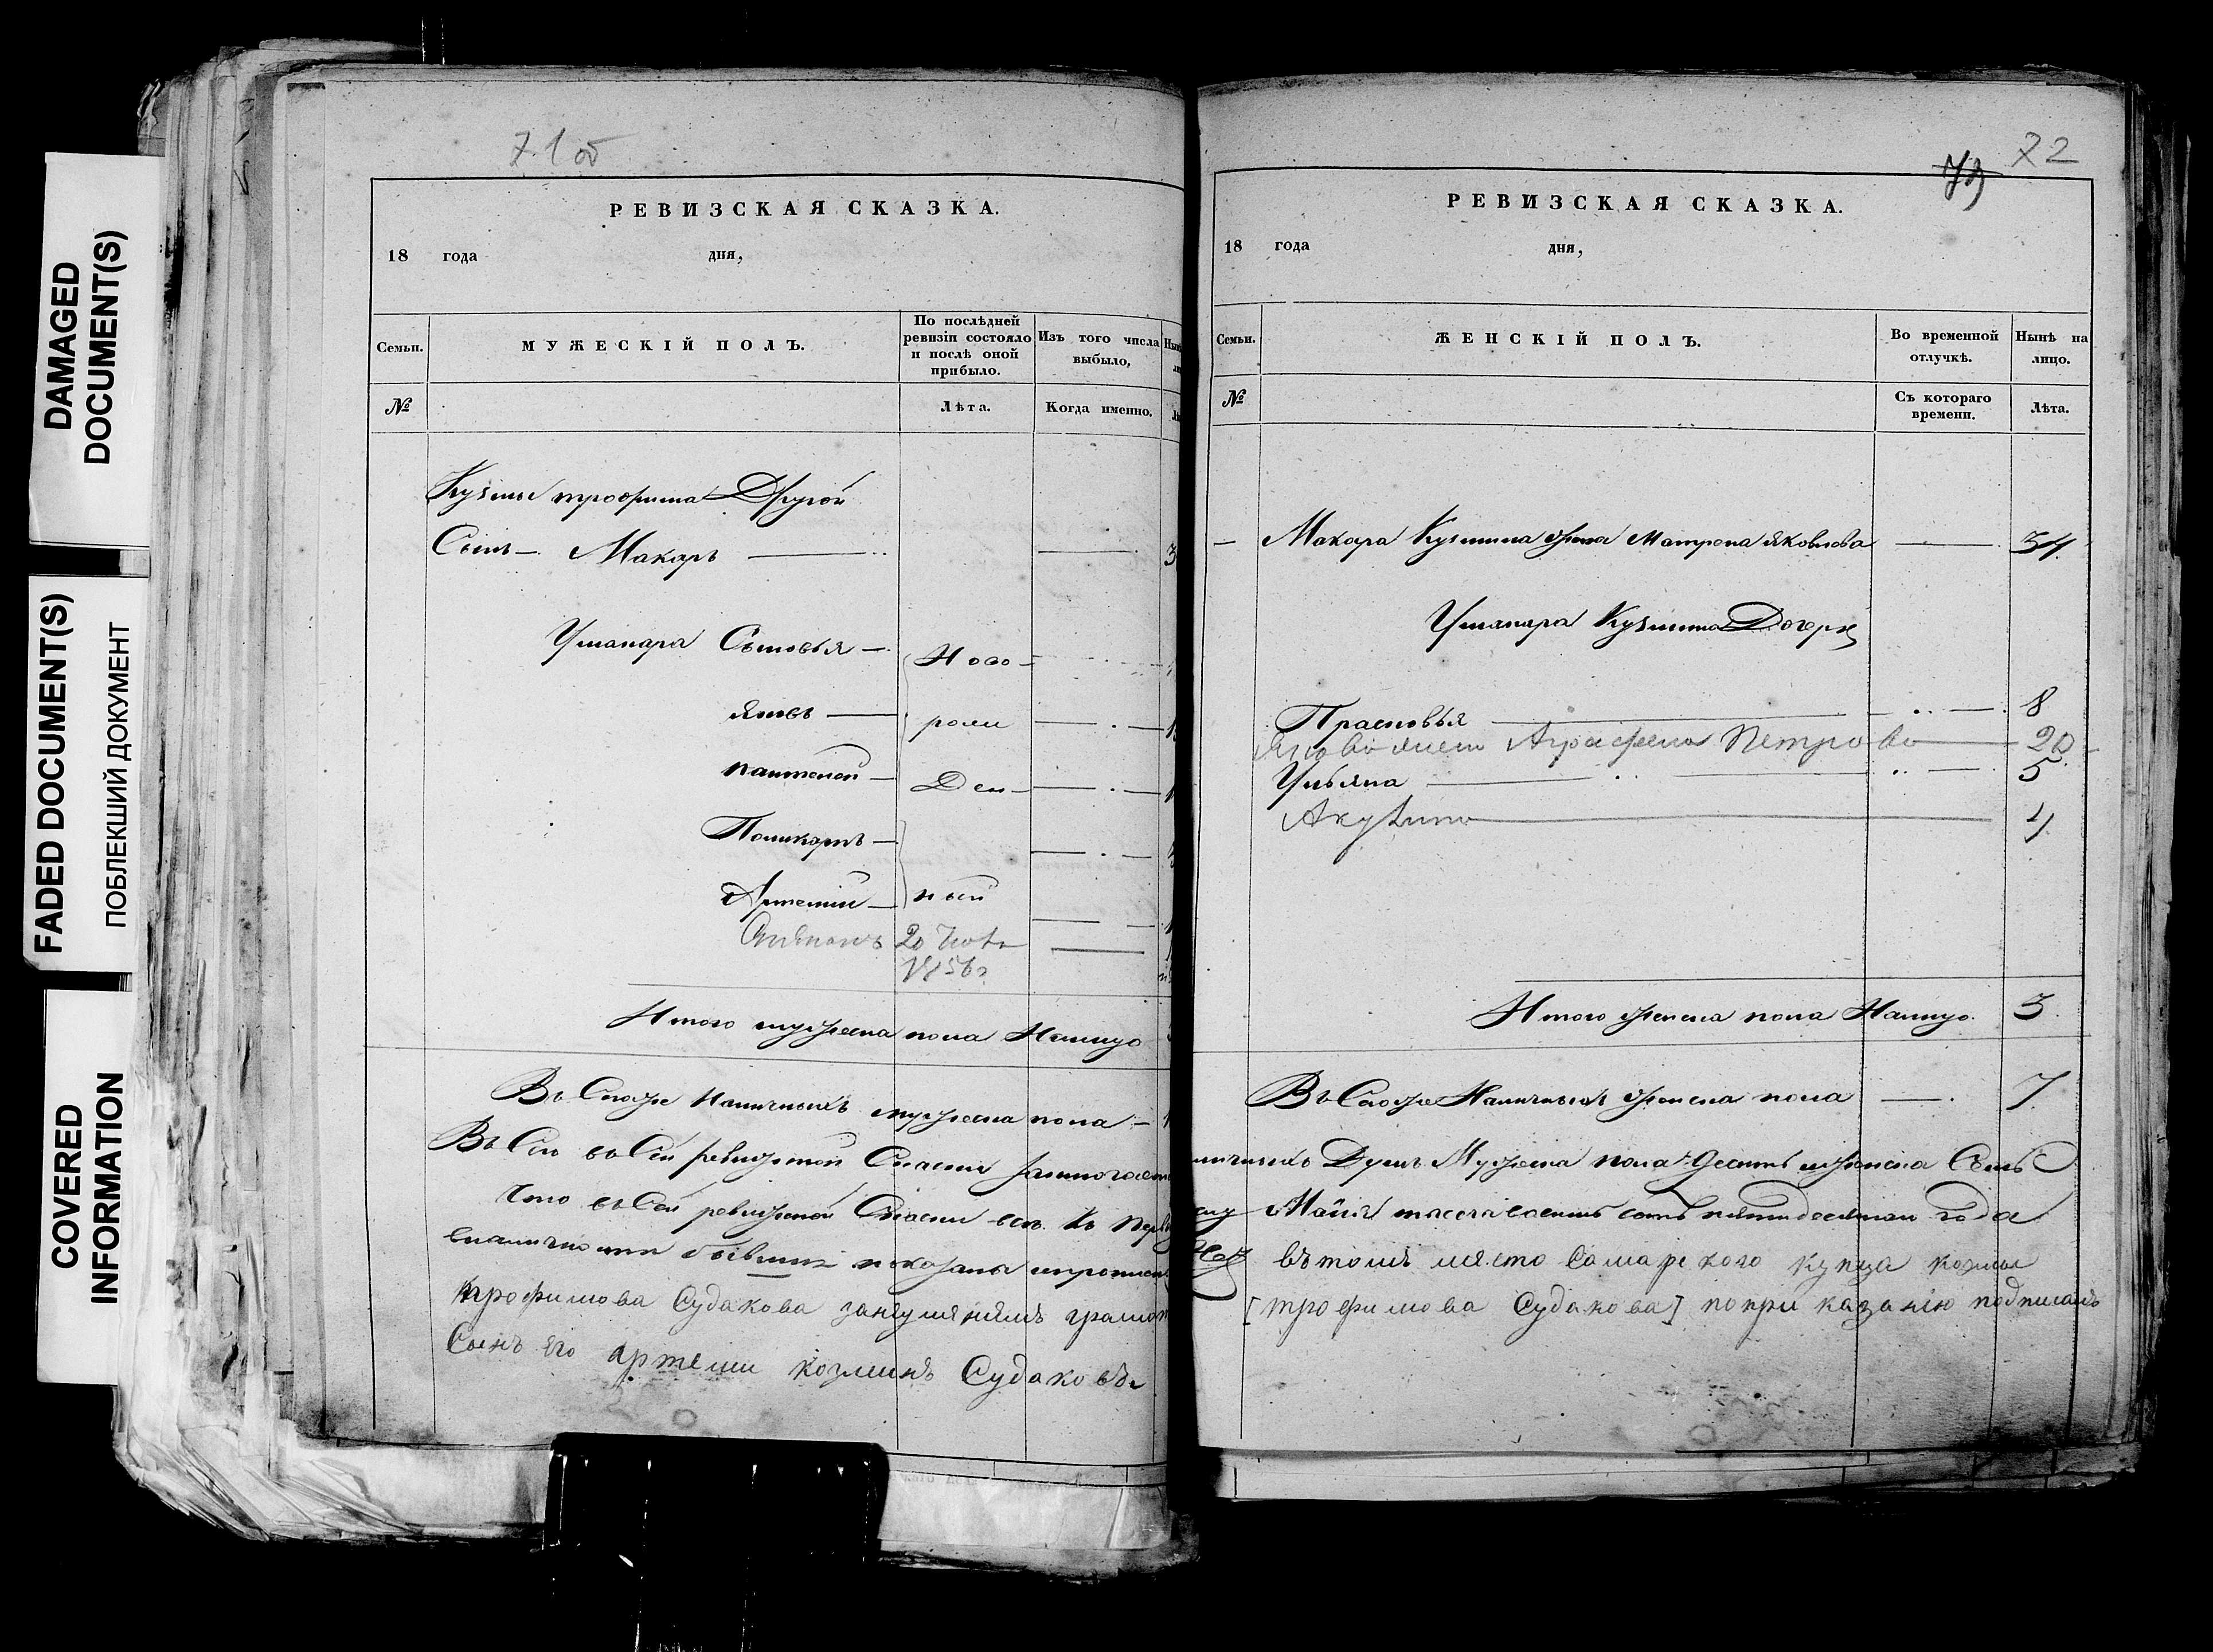 DAMAGED
DOCUMENT(S)
FADED DOCUMENT(S)
ПОБЛЕКШИЙ ДОКУМЕНТ
COVERED
INFORMATION
71 об
РЕВИЗСКАЯ СКАЗКА.
18 года дня,
Семьи. МУЖЕСКІЙ ПОЛЪ. По послѣдней ревизіи состояло и послѣ оной прибыло. Изъ того числа выбыло,
№ Лѣта. Когда именно,
Кузмы трофима Другой
Сынъ — Макаръ
Умакара Сыновья — Ново-
Яковъ — рож
Пантелей — Ден-
Поликарпъ —
Артемій — ный
Степанъ 20
1856
Итого мужеска пола Налицо
Въ Сказке Наличныхъ мужеска пола —
Что въ Сей ревижской Сказки все къ
бывших показаны
трофимова Судакова грамот
Сынъ его артеми козминъ Судаковъ
72
РЕВИЗСКАЯ СКАЗКА.
18 года дня,
Семьи. ЖЕНСКІЙ ПОЛЪ. Во временной отлучкѣ. Нынѣ на лицо.
№ Съ котораго времени. Лѣта.
— Макара Кузмина жена Матрена Яковлева — 34
Умакара Кузмина Дочери
Прасковья 8
Аграфена Петрова 20
Ульяна 5
Акулина 4
Итого женска пола Налицо 3
Наличныхъ женска пола — 7
Душъ Мужеска пола десять женска Семь
Маія тысяча восемь сотъ пятидесятаго года
въ томъ место Самарского купца козмы
[трофимова Судакова] поприказанію подписалъ